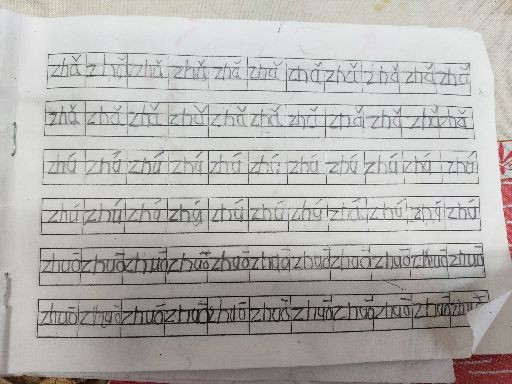 zhǎ zhǎ zhǎ zhǎ zhǎ zhǎ zhǎ zhǎ zhǎ zhǎ zhǎ
zhǎ zhǎ zhǎ zhǎ zhǎ zhǎ zhǎ zhǎ zhǎ zhǎ zhǎ
zhú zhú zhú zhú zhú zhú zhú zhú zhú zhú zhú
zhú zhú zhú zhú zhú zhú zhú zhú zhú zhú zhú
zhuō zhuō zhuō zhuō zhuō zhuō zhuō zhuō zhuō zhuō zhuō
zhuō zhuō zhuō zhuō zhuō zhuō zhuō zhuō zhuō zhuō